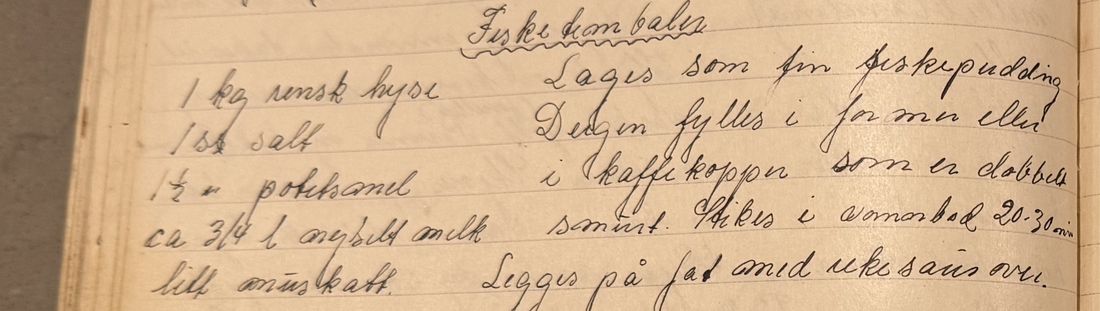 Fisketimbaler
1 kg rensk hyse
1 ss salt
1½ " potetsmel
ca 3/4 l nysilt melk
litt muskatt.
Lages som fin fiskepudding
Deigen fylles i former eller
i kaffekopper som er dobbelt
smurt. Stikes i vannbad 20-30 min
Legges på fat med rekesaus over.